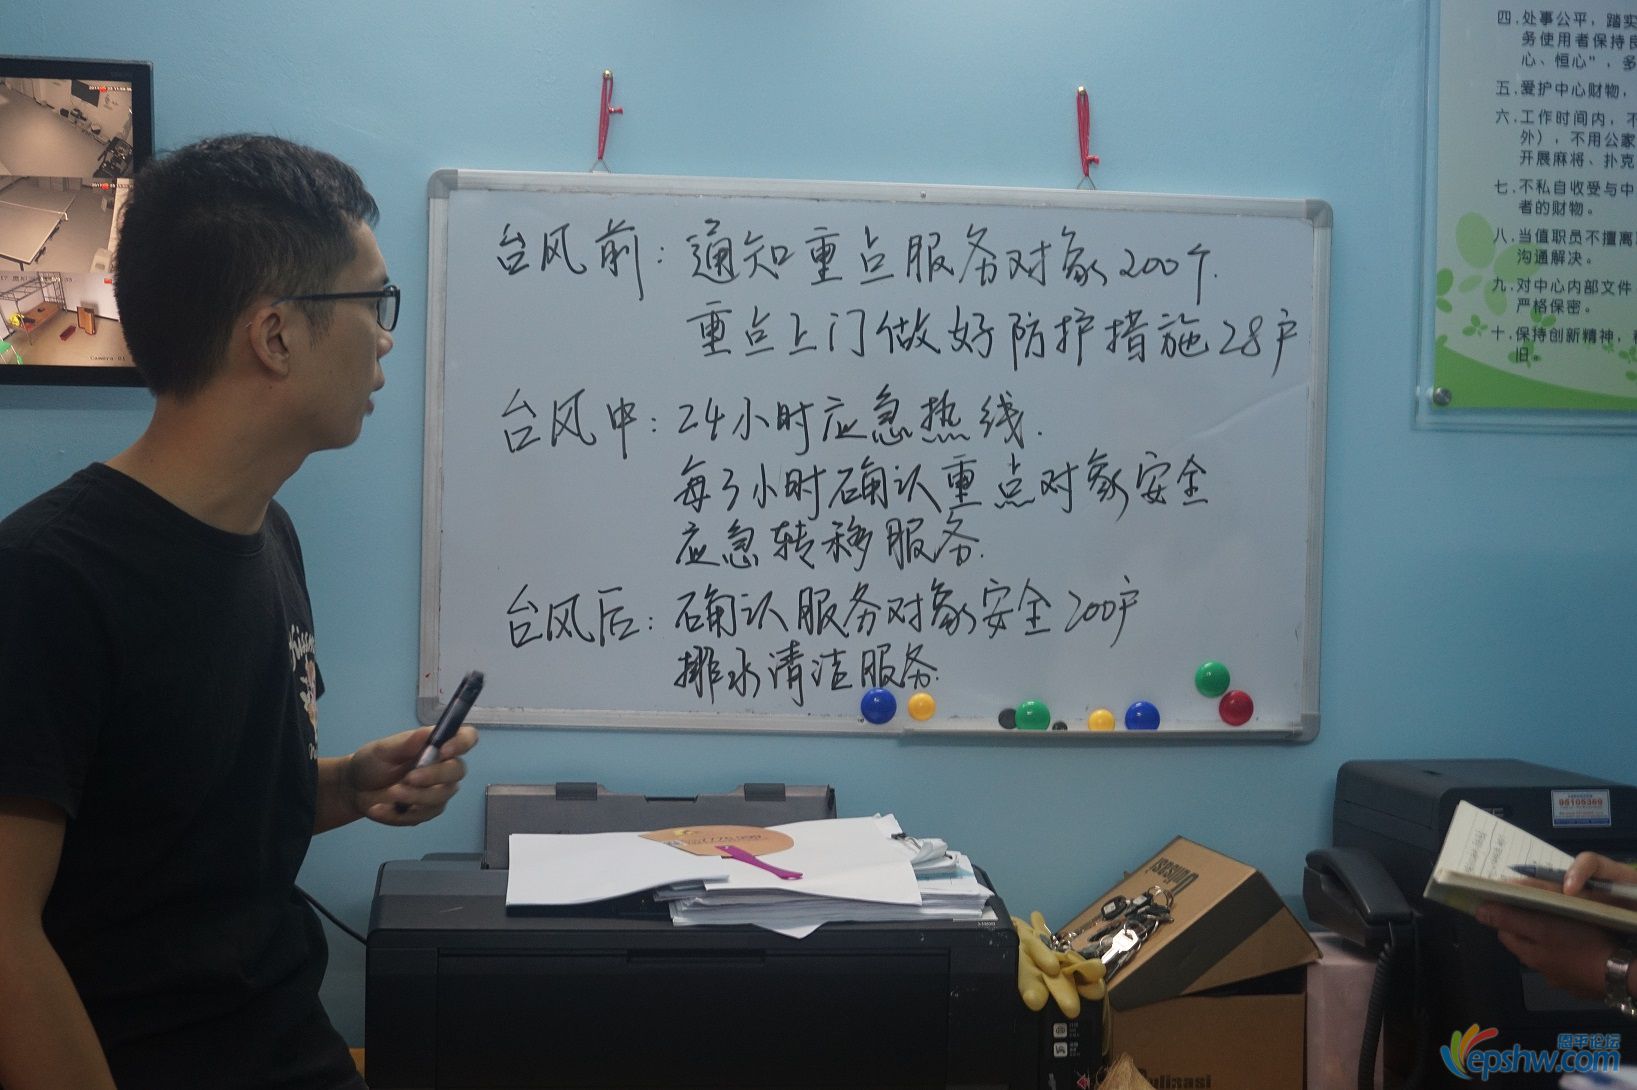 台风前：通知重点服务对象200个.
重点上门做好防护措施28户
台风中：24小时应急热线.
每3小时确认重点对象安全
应急转移服务.
台风后：确认服务对象安全200户
排水清洁服务.
四.处事公平，踏实
务使用者保持良
心、恒心”，多
五.爱护中心财物，
六.工作时间内，不
外），不用公家
开展麻将、扑克
七.不私自收受与中
者的财物。
八.当值职员不擅离
沟通解决。
九.对中心内部文件
严格保密。
十.保持创新精神，
旧。
Camera 01
95105369
恩平论坛
epshw.com